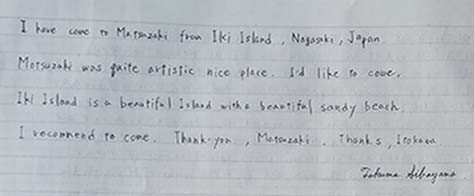 I have come to Matsuzaki from Iki Island, Nagasaki, Japan
Matsuzaki was quite artistic nice place. I'd like to come.
Iki Island is a beautiful Island with a beautiful sandy beach.
I recommend to come. Thank-you, Matsuzaki. Thanks, Irokawa